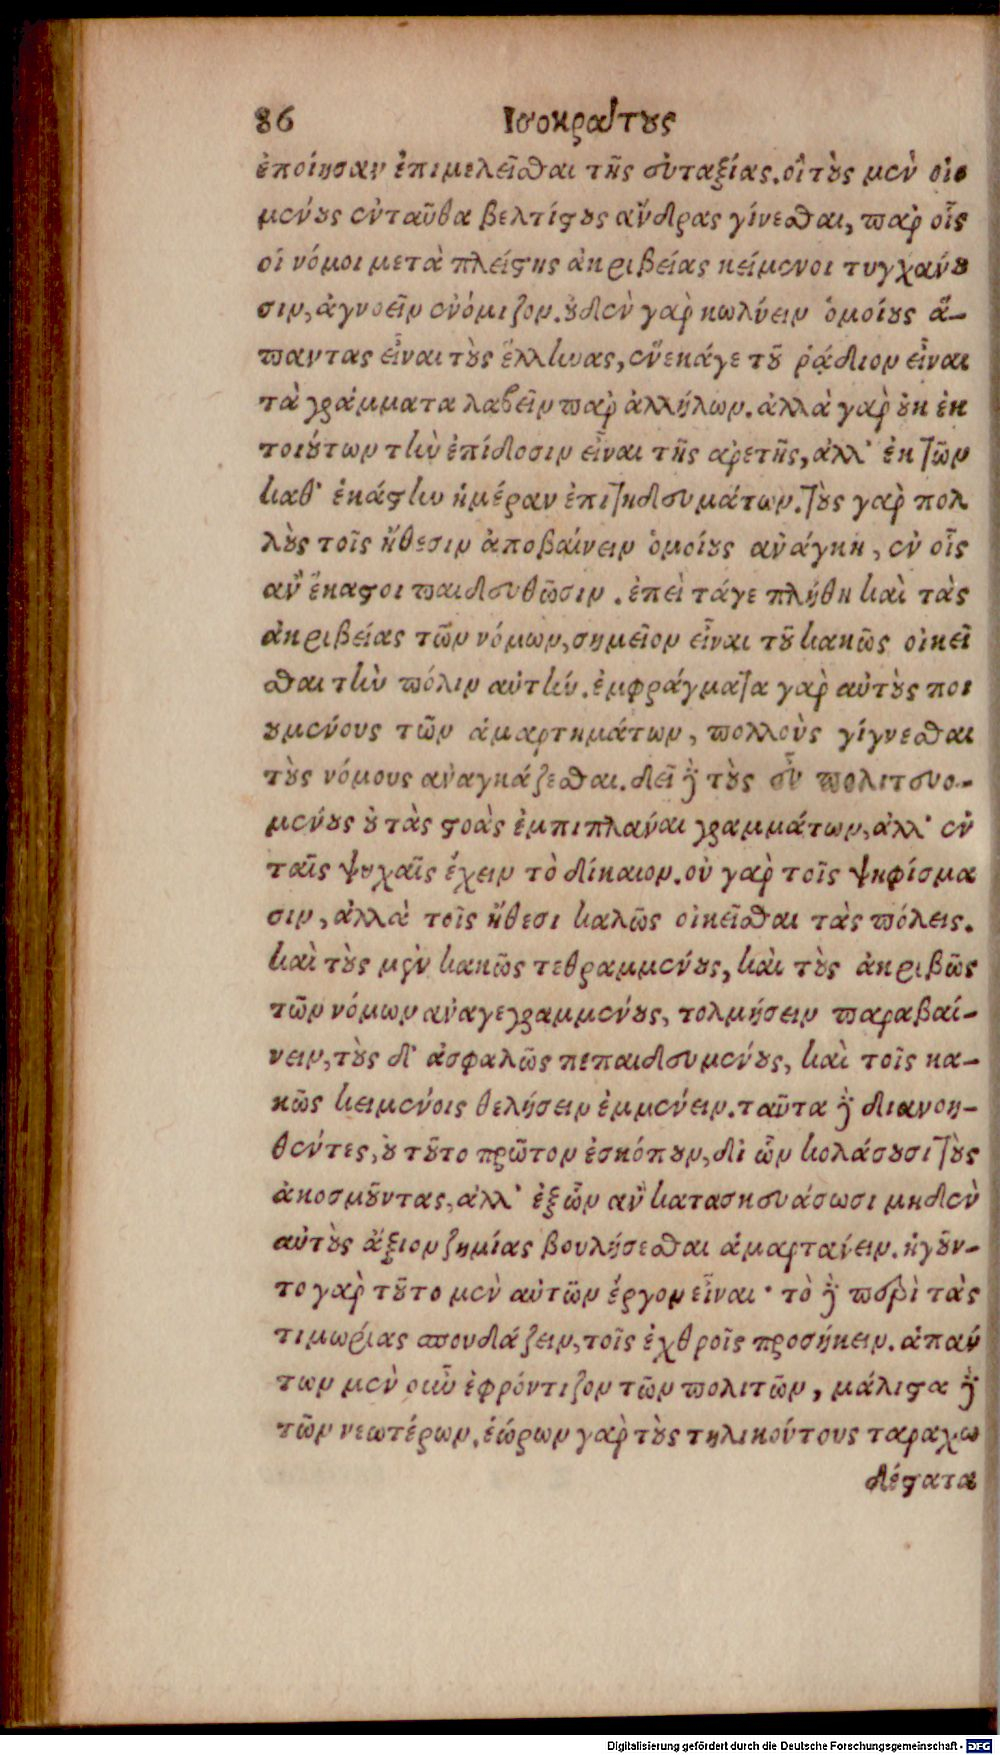 86 Ἰσοκράτους
ἐποίησαν ἐπιμελεῖσθαι τῆς εὐταξίας. οἳ τοὺς μὲν οἰο
μένους ἐνταῦθα βελτίστους ἄνδρας γίνεσθαι, παρ' οἷς
οἱ νόμοι μετὰ πλείστης ἀκριβείας κείμενοι τυγχάνου
σιν, ἀγνοεῖν ἐνόμιζον. οὐδὲν γὰρ κωλύειν ὁμοίους ἅ-
παντας εἶναι τοὺς ἕλληνας, ἕνεκά γε τοῦ ῥᾴδιον εἶναι
τὰ γράμματα λαβεῖν παρ' ἀλλήλων. ἀλλὰ γὰρ οὐκ ἐκ
τοιούτων τὴν ἐπίδοσιν εἶναι τῆς ἀρετῆς, ἀλλ' ἐκ τῶν
καθ' ἑκάστην ἡμέραν ἐπιτηδευμάτων. τοὺς γὰρ πολ
λοὺς τοῖς ἤθεσιν ἀποβαίνειν ὁμοίους ἀνάγκη, ἐν οἷς
ἂν ἕκαστοι παιδευθῶσιν. ἐπεὶ τάγε πλήθη καὶ τὰς
ἀκριβείας τῶν νόμων, σημεῖον εἶναι τοῦ κακῶς οἰκεῖ
σθαι τὴν πόλιν αὐτήν. ἐμφράγματα γὰρ αὐτοὺς ποι
ουμένους τῶν ἁμαρτημάτων, πολλοὺς γίγνεσθαι
τοὺς νόμους ἀναγκάζεσθαι. δεῖ δὲ τοὺς εὖ πολιτευο-
μένους οὐ τὰς στοὰς ἐμπιπλάναι γραμμάτων, ἀλλ' ἐν
ταῖς ψυχαῖς ἔχειν τὸ δίκαιον. οὐ γὰρ τοῖς ψηφίσμα
σιν, ἀλλὰ τοῖς ἤθεσι καλῶς οἰκεῖσθαι τὰς πόλεις.
καὶ τοὺς μὲν κακῶς τεθραμμένους, καὶ τοὺς ἀκριβῶς
τῶν νόμων ἀναγεγραμμένους, τολμήσειν παραβαί-
νειν, τοὺς δ' ἀσφαλῶς πεπαιδευμένους, καὶ τοῖς κα-
κῶς κειμένοις θελήσειν ἐμμένειν. ταῦτα δὲ διανοη-
θέντες, οὐ τοῦτο πρῶτον ἐσκόπουν, δι' ὧν κολάσουσι τοὺς
ἀκοσμοῦντας, ἀλλ' ἐξ ὧν ἂν κατασκευάσωσι μηδὲν
αὐτοὺς ἄξιον ζημίας βουλήσεσθαι ἁμαρτάνειν. ἡγοῦν-
το γὰρ τοῦτο μὲν αὐτῶν ἔργον εἶναι· τὸ δὲ περὶ τὰς
τιμωρίας σπουδάζειν, τοῖς ἐχθροῖς προσήκειν. ἁπάν
των μὲν οὖν ἐφρόντιζον τῶν πολιτῶν, μάλιστα δὲ
τῶν νεωτέρων. ἑώρων γὰρ τοὺς τηλικούτους ταραχω
δέστατα
Digitalisierung gefördert durch die Deutsche Forschungsgemeinschaft - DFG